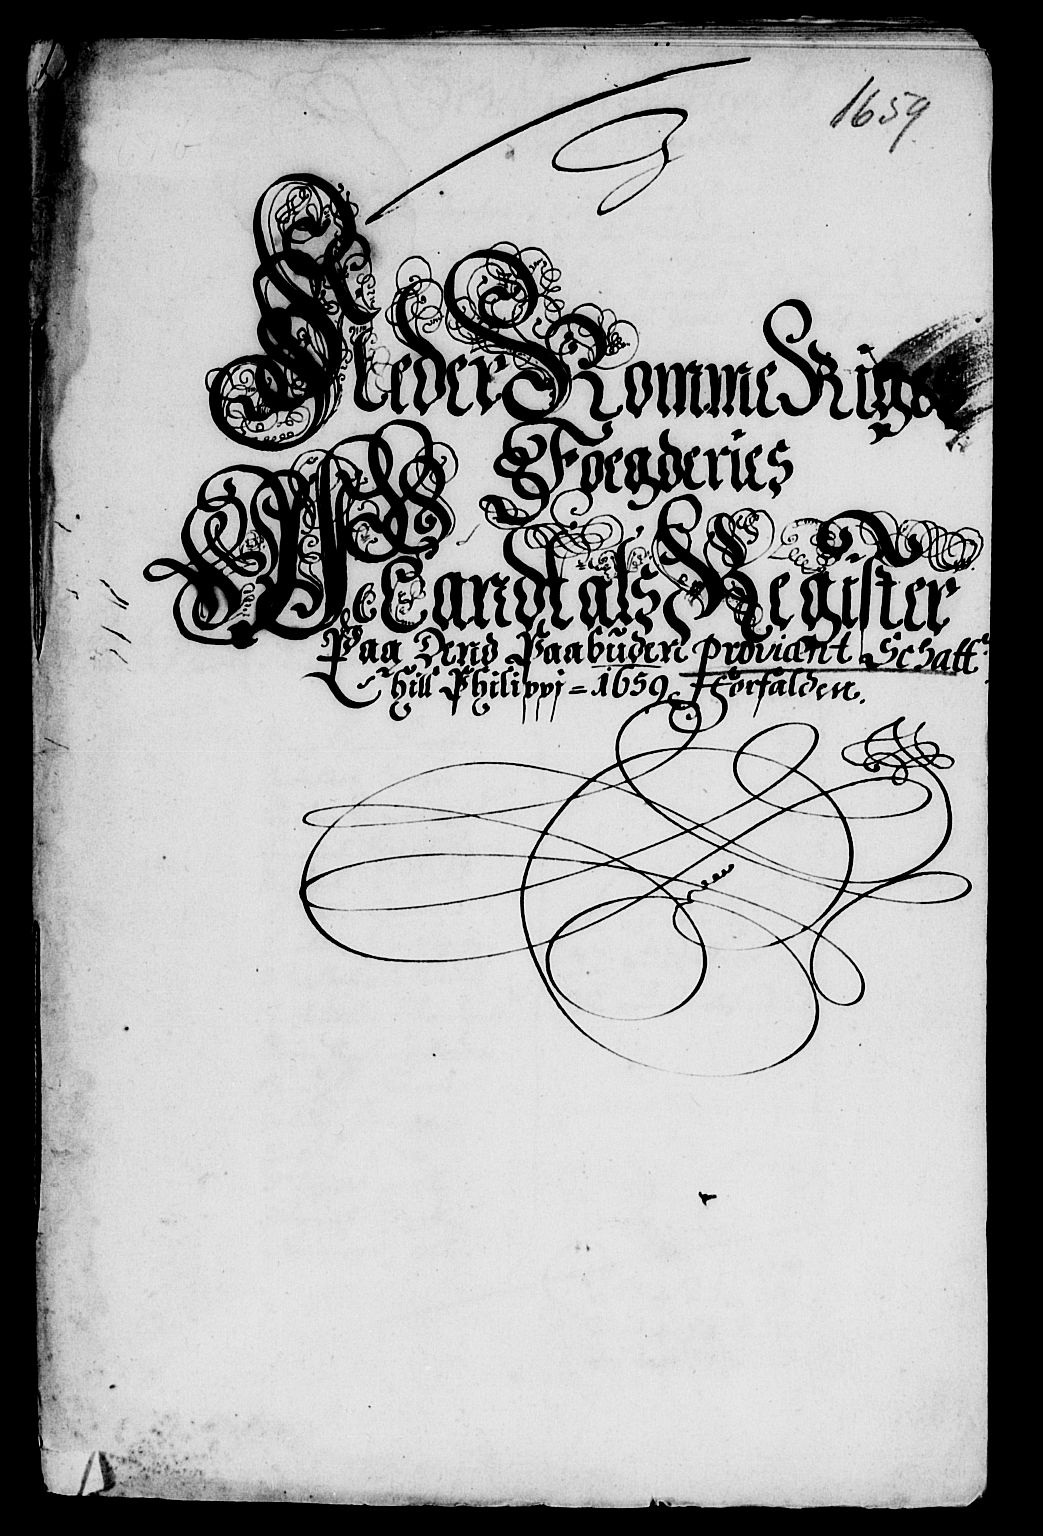 1659
Neder Romme Riges
Foegderies
Mandtals Register
Paa Dend Paabuden Proviant Schatt
thill Philippi = 1659 forfalden.